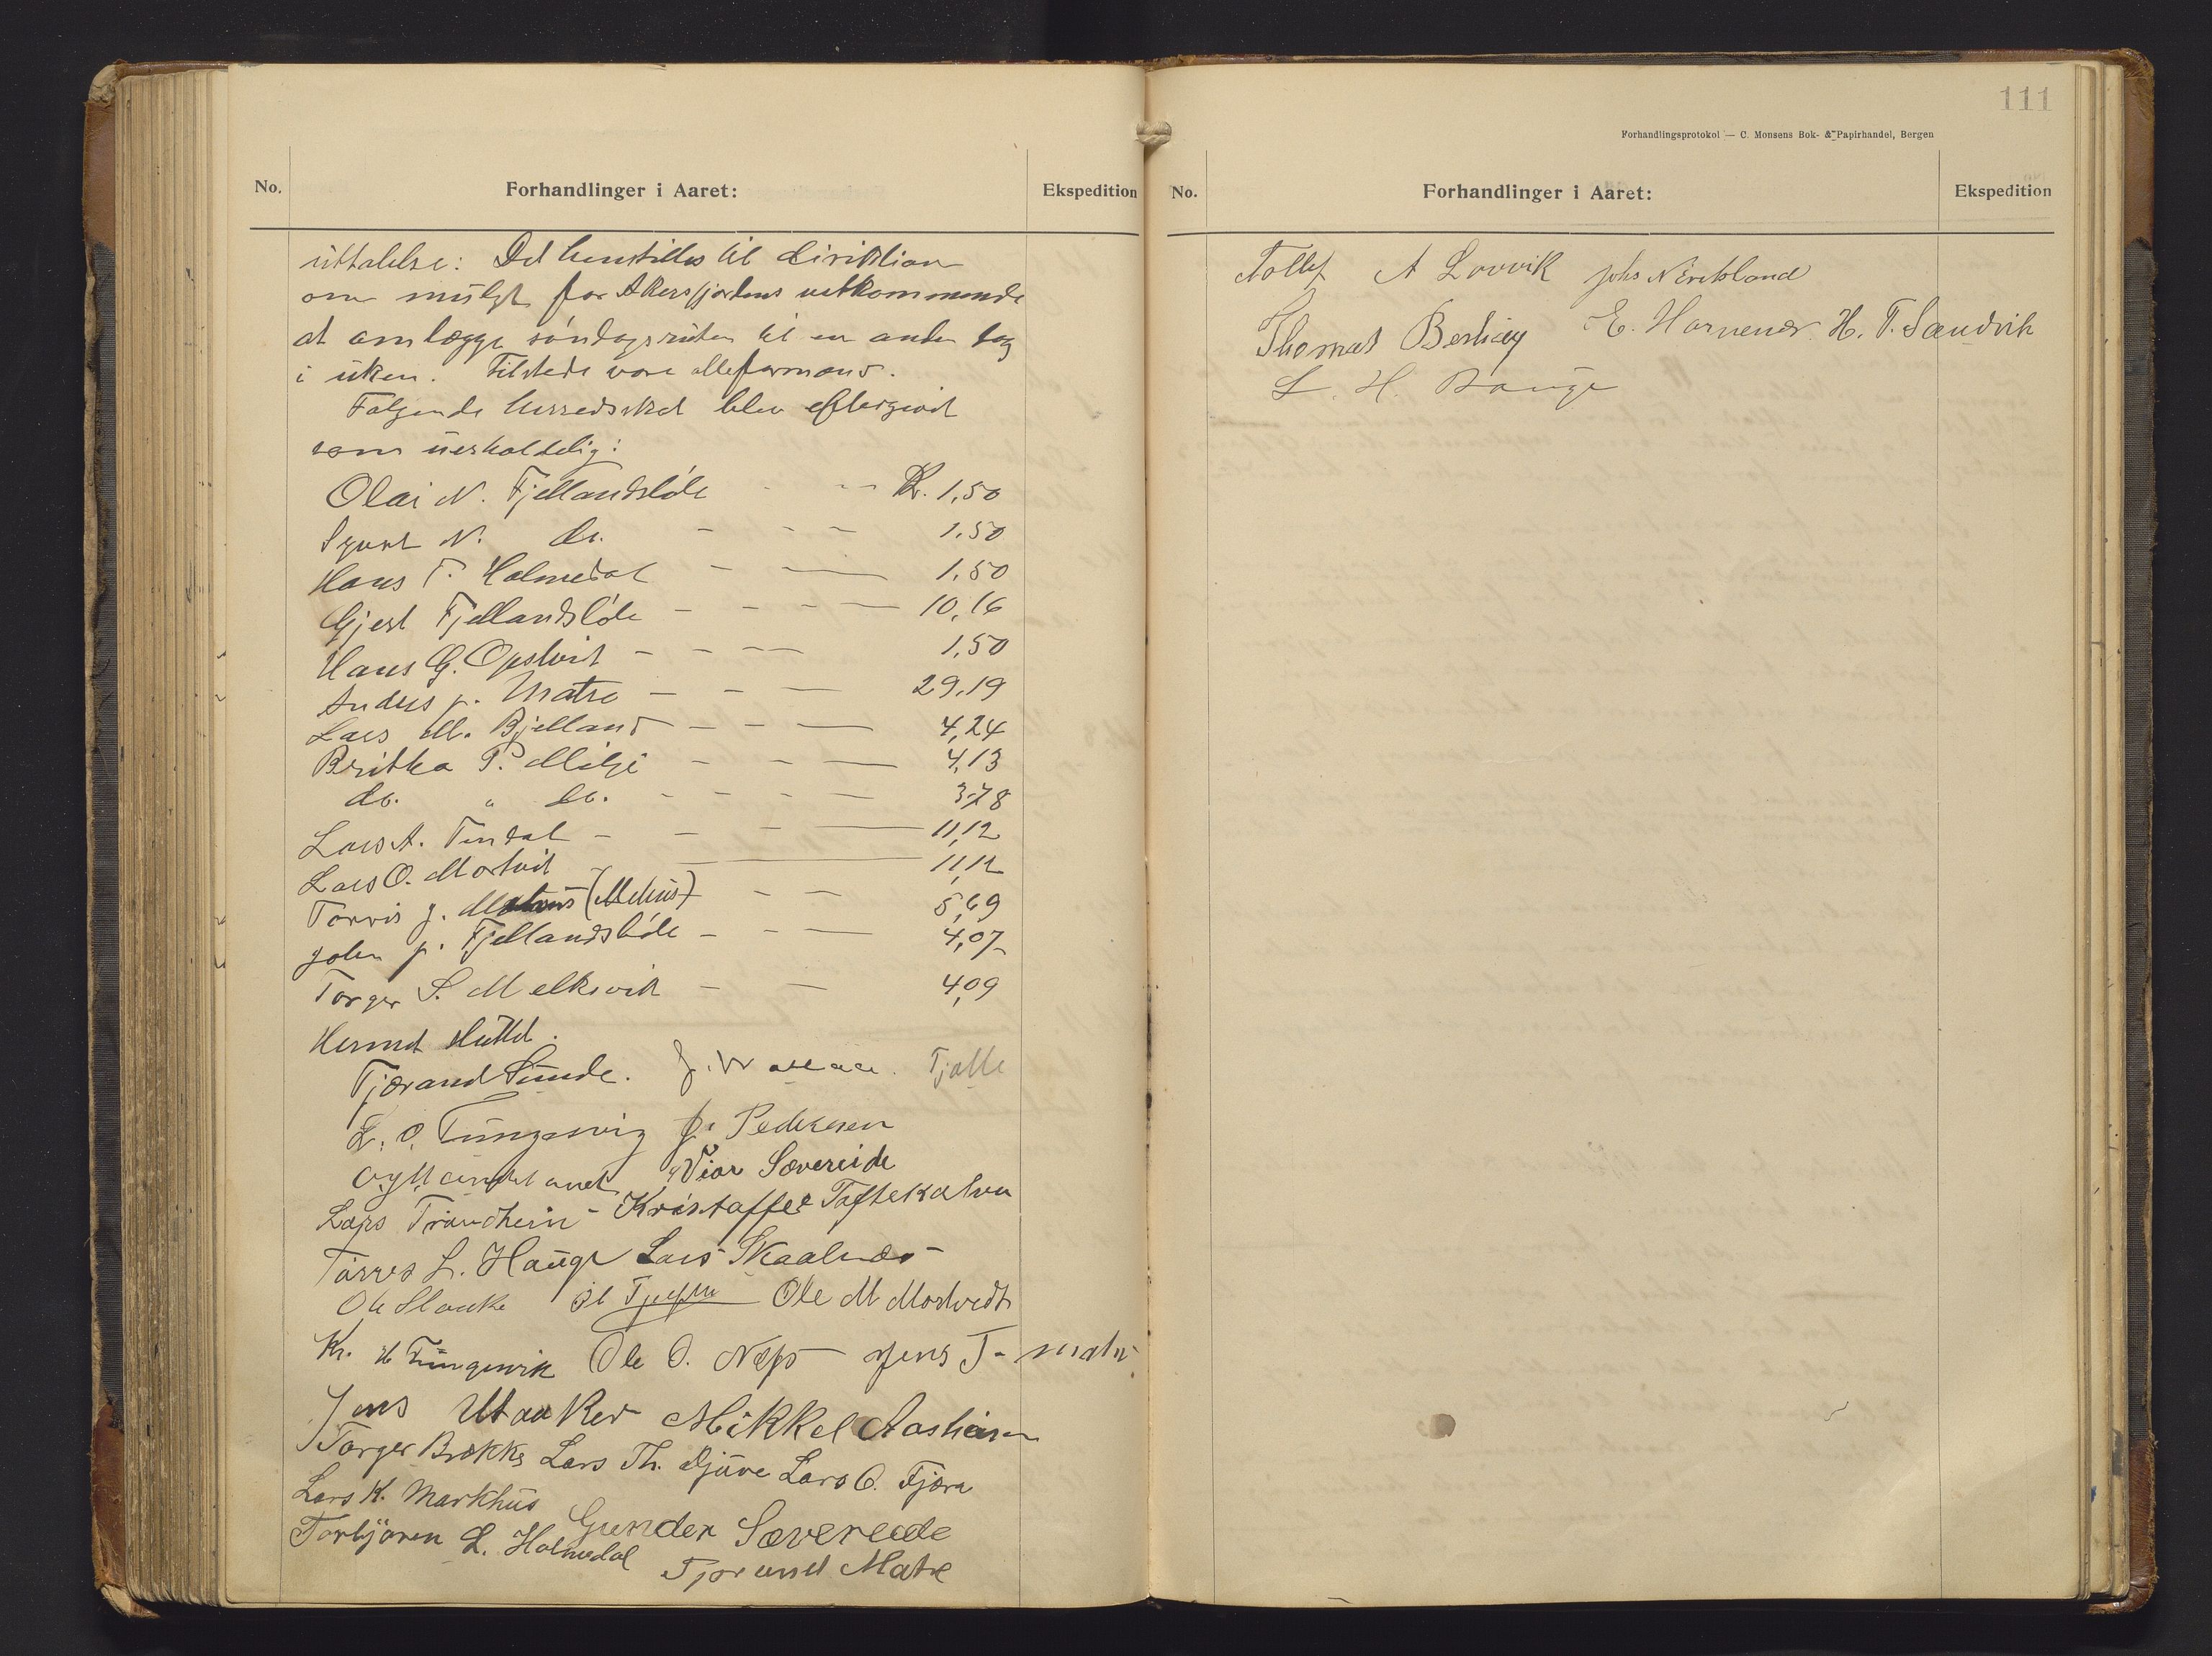 No. Forhandlinger i Aaret: Ekspedition
uttalelse: Det henstilles til direktion
om muligt for Akersfjordens vetkommende
at omlægge søndagsruten til en anden dag
i uken. Tilstede vare alle formænd.
Følgende herredsskat blev eftergivet
som uerholdelig:
Olai N. Fjellandsbøle - - - Kr. 1,50
N. do. - - - 1.50
Hans T. Holmedal - - 1.50
Gjert Fjellandsbøle - - - - 10,16
Hans G. Opstveit - - - - 1,50
Anders J. Matre - - - 29.19
Lars M. Bjelland - - - 4,24
Britha P. Milje - - - 4,13
do. " do. - - - - 3.78
Lars A. Tindal - - - 11,12
Lars O. Mortveit - 11,12
Torris J. (Mehus) - - 5,69
John J. Fjellandsbøle - - - 4,07
Torger S. Melksvik - - 4,09
Hermed sluttet.
Tjærand Sunde. J. Tjelle
L. O. Tungesvig J. Pedersen
Viar Sævereide
Lars Trændhein - Kristoffer Toftekalven
Torres L. Hauge Lars Skaalnes
Ole Slaake Ole M Mortvedt
Kr. H Tungesvik Ole O. Næs Jens T- matre
Jens Utaaker Mikkel Aasheim
Torger Brekke Lars Th. Djuve Lars O. Fjæra
Lars K. Markhus Gunder Sævereide
Torbjørn L. Holmedal Tjorund Matre
111
Forhandlingsprotokol — C. Monsens Bok- & Papirhandel, Bergen
No. Forhandlinger i Aaret: Ekspedition
Tollef A Lovvik Johs N Eriksland
Thomas E. H. T. Sandvik
L. H. Bauge